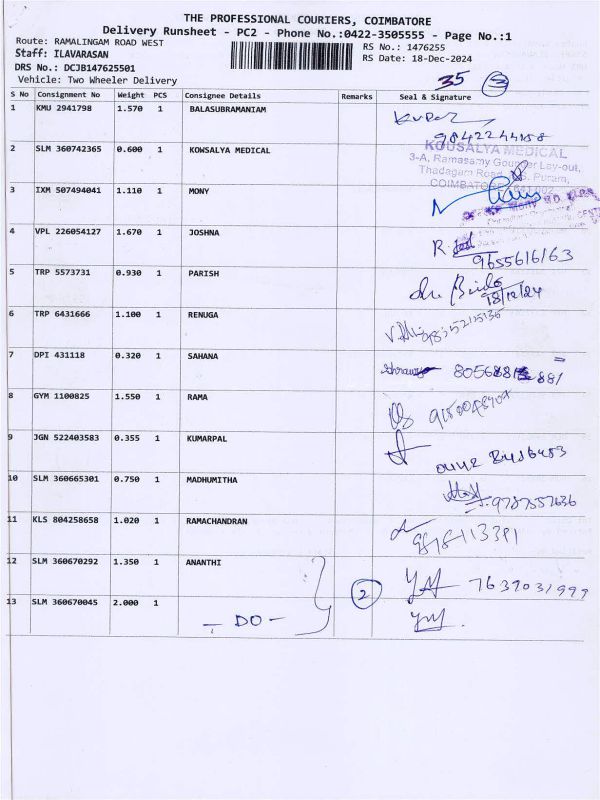 THE PROFESSIONAL COURIERS, COIMBATORE
Delivery Runsheet - PC2 - Phone No.:0422-3505555 - Page No.:1
Route: RAMALINGAM ROAD WEST
RS No.: 1476255
Staff: ILAVARASAN
RS Date: 18-Dec-2024
DRS No.: DCJB147625501
Vehicle: Two Wheeler Delivery
35 3
S No Consignment No Weight PCS Consignee Details Remarks Seal & Signature
1 KMU 2941798 1.570 1 BALASUBRAMANIAM
9842244158
2 SLM 360742365 0.600 1 KOWSALYA MEDICAL
KOUSALYA MEDICAL
3-A, Ramasamy Gounder Lay-out,
Thadagam Road, R.S. Puram,
COIMBATORE - 641 002
3 IXM 507494041 1.110 1 MONY
4 VPL 226054127 1.670 1 JOSHNA
9655616163
5 TRP 5573731 0.930 1 PARISH
18/12/24
6 TRP 6431666 1.100 1 RENUGA
7 DPI 431118 0.320 1 SAHANA
8 GYM 1100825 1.550 1 RAMA
9 JGN 522403583 0.355 1 KUMARPAL
10 SLM 360665301 0.750 1 MADHUMITHA
9787557636
11 KLS 804258658 1.020 1 RAMACHANDRAN
12 SLM 360670292 1.350 1 ANANTHI
2 7639031999
13 SLM 360670045 2.000 1
- DO -